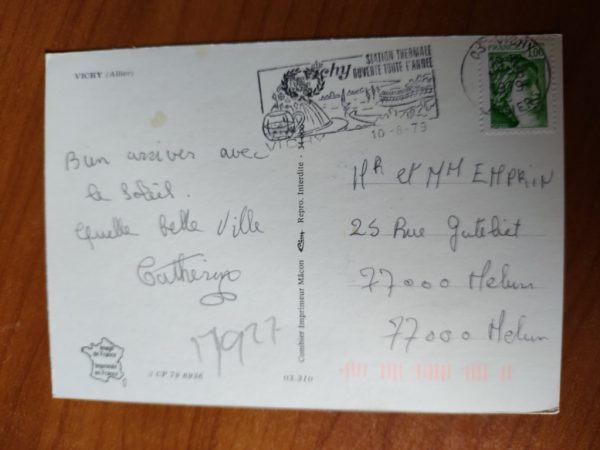 VICHY (Allier)
Vichy
STATION THERMALE
OUVERTE TOUTE L'ANNÉE
VICHY
10-8-79
FRANCE
1,00
Bien arriver avec
le Soleil.
Quelle belle Ville
Catherine
17927
Image
de France
Imprimée
en France
3 CP 79 8936
03.310
Combier Imprimeur Mâcon Cim Repro. Interdite -
Mr et MM EMPRIN
25 Rue
77000 Melun
77000 Melun